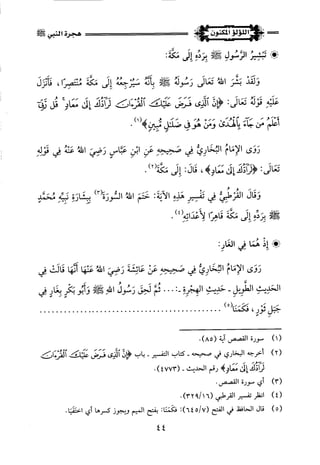 اللؤلؤ المكنون
هجرة النبي ﷺ
* تبشير الرسول ﷺ برده إلى مكة:
ولقد بشر الله تعالى رسوله ﷺ بأنه سيرجعه إلى مكة منتصرا، فأنزل
عليه قوله تعالى: ﴿إن الذي فرض عليك القرءان لرادك إلى معاد قل ربي
أعلم من جاء بالهدى ومن هو في ضلال مبين﴾(١).
روى الإمام البخاري في صحيحه عن ابن عباس رضي الله عنه في قوله
تعالى: ﴿لرادك إلى معاد﴾، قال: إلى مكة(٢).
وقال القرطبي في تفسير هذه الآية: ختم الله السورة(٣) ببشارة نبيه محمد
ﷺ برده إلى مكة قاهرا لأعدائه(٤).
* إذ هما في الغار:
روى الإمام البخاري في صحيحه عن عائشة رضي الله عنها أنها قالت في
الحديث الطويل - حديث الهجرة -: ... ثم لحق رسول الله ﷺ وأبو بكر بغار في
جبل ثور، فكمنا(٥) ........................................
(١) سورة القصص آية (٨٥).
(٢) أخرجه البخاري في صحيحه - كتاب التفسير - باب ﴿إن الذي فرض عليك القرءان
لرادك إلى معاد﴾ رقم الحديث - (٤٧٧٣).
(٣) أي سورة القصص.
(٤) انظر تفسير القرطبي (٣٢٩/١٦).
(٥) قال الحافظ في الفتح (٦٤٥/٧): فكمنا: بفتح الميم ويجوز كسرها أي اختفيا.
٤٤